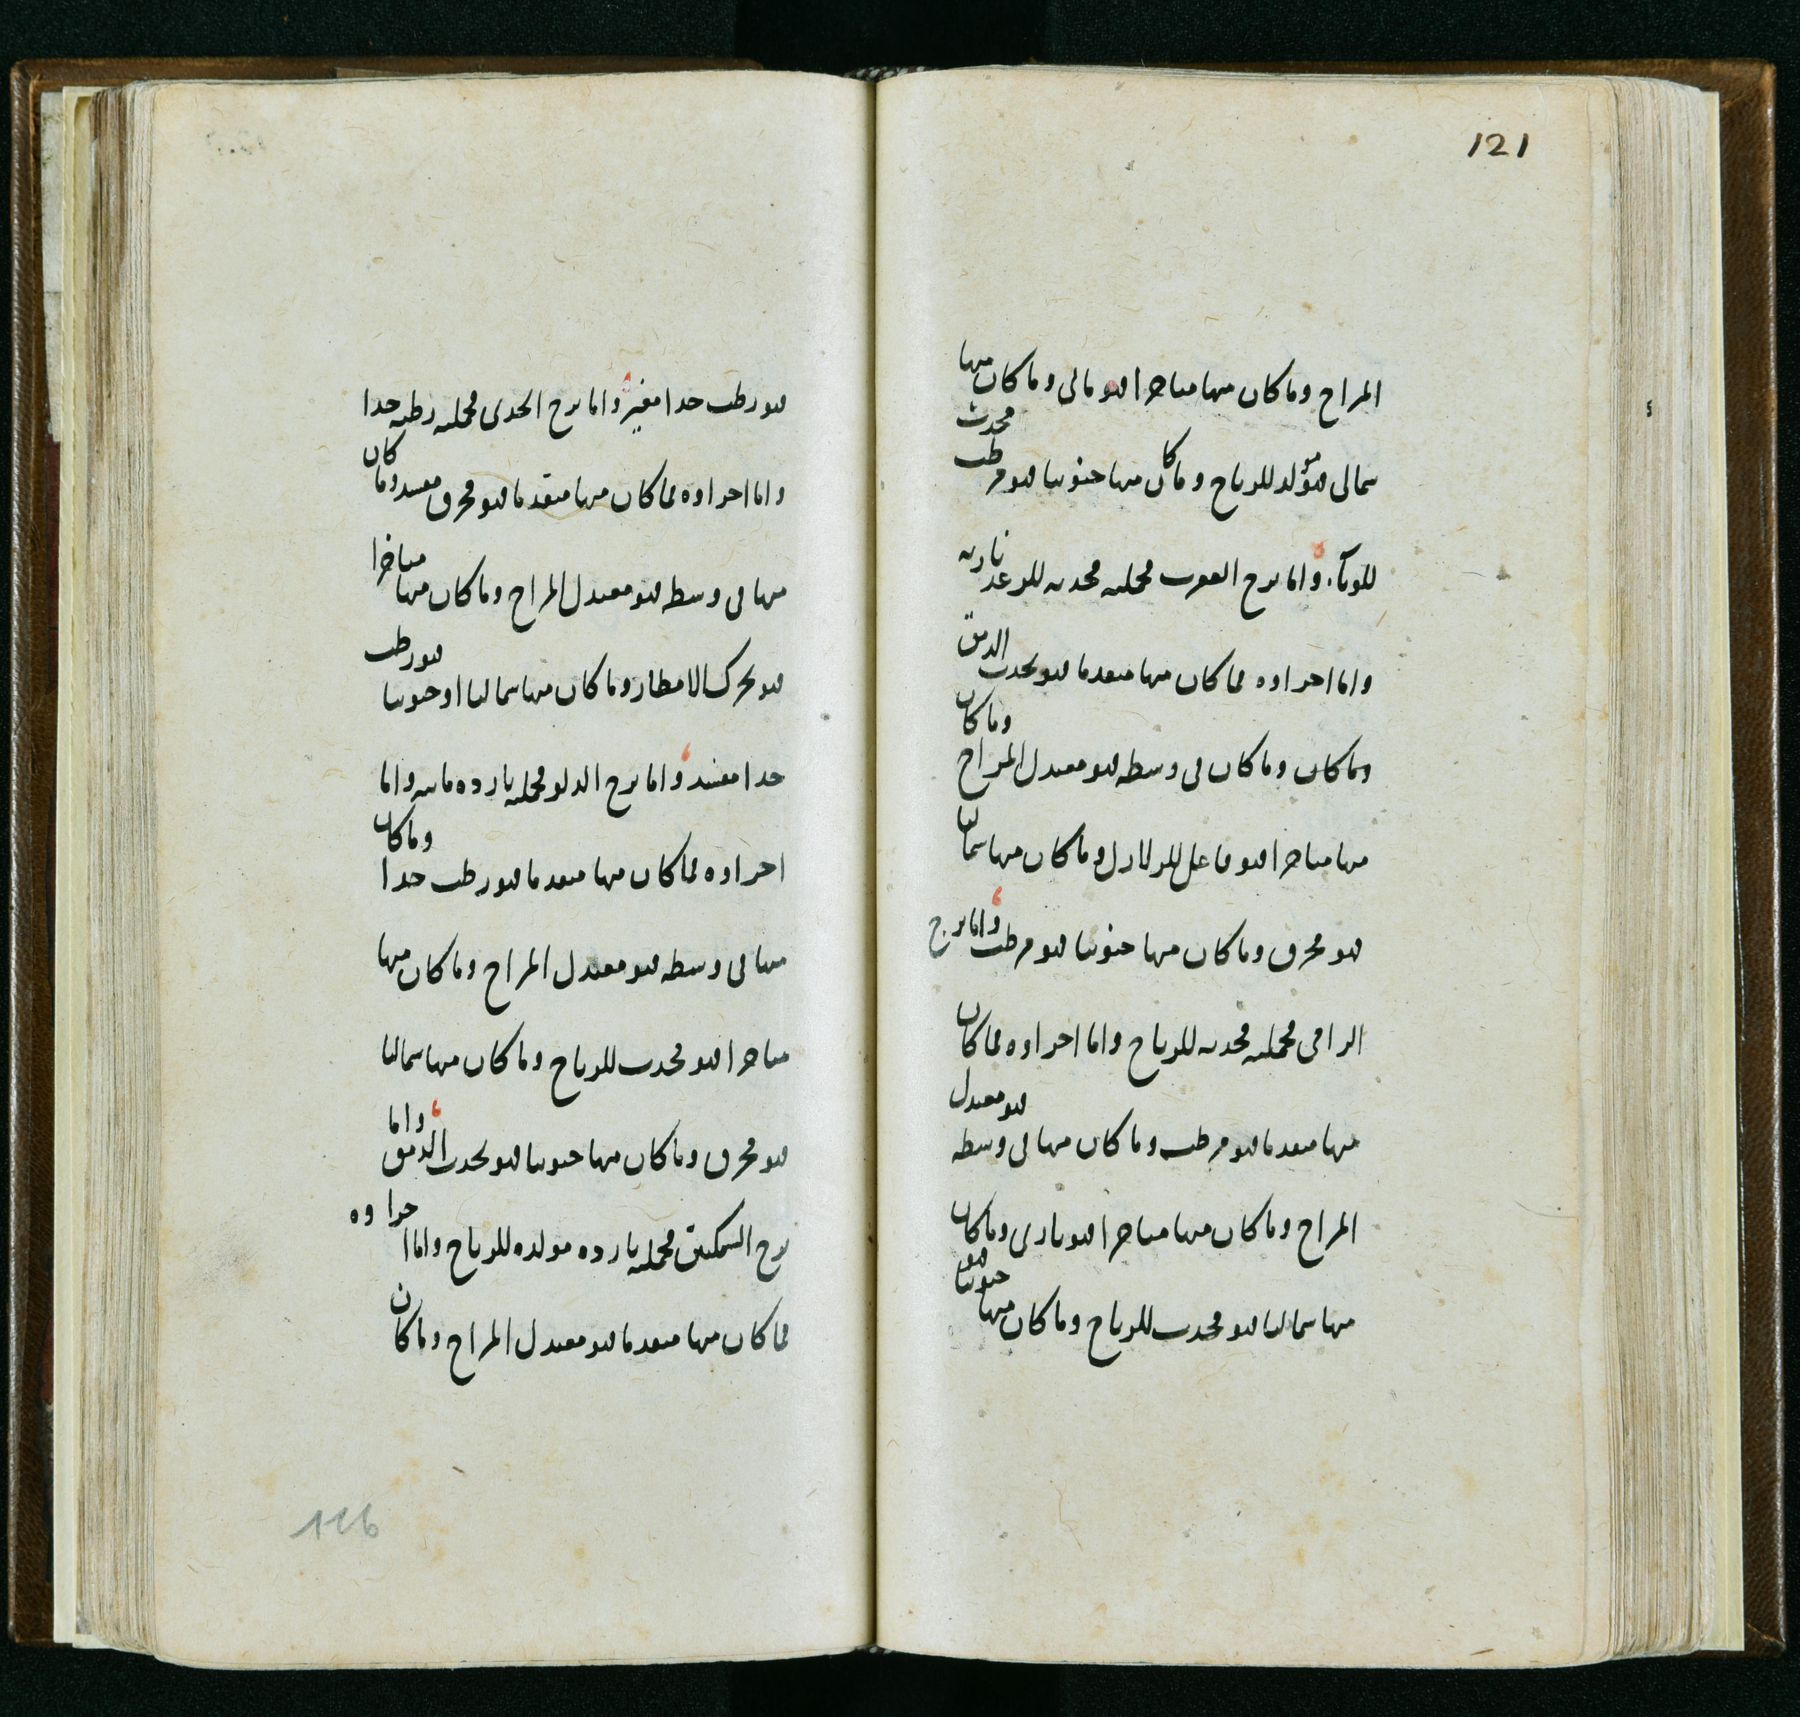 121
المزاج وما كان منها متاخرا فهو مائى وما كان منها
شمالى فهو مولد للرياح وما كان منها جنوبيا فهو مرطب محدث
للوباء واما برج العقرب فجملته محدثه للرعد ناريه
واما اجزاوه فما كان منها متقدما فهو يحدث الدمق
وما كان وما كان فى وسطه فهو معتدل المزاج وما كان
منها متاخرا فهو فاعل للزلازل وما كان منها شماليا
فهو محرق وما كان منها جنوبيا فهو مرطب واما برج
الرامى فجملته محدثه للرياح واما اجزاوه فما كان
منها متقدما فهو مرطب وما كان منها فى وسطه فهو معتدل
المزاج وما كان منها متاخرا فهو نارى وما كان
منها شماليا فهو محدث للرياح وما كان منها جنوبيا فهو
فهو رطب جدا مغير واما برج الجدى فجملته رطبه جدا
واما اجزاوه فما كان منها متقدما فهو محرق مفسد وما كان
منها فى وسطه فهو معتدل المزاج وما كان منها متاخرا
فهو يحرك الامطار وما كان منها شماليا او جنوبيا فهو رطب
جدا مفسد واما برج الدلو فجملته بارده مائيه واما
اجزاوه فما كان منها متقدما فهو رطب جدا وما كان
منها فى وسطه فهو معتدل المزاج وما كان منها
متاخرا فهو محدث للرياح وما كان منها شماليا
فهو محرق وما كان منها جنوبيا فهو يحدث الدمق واما
برج السمكتين فجملته بارده مولده للرياح واما اجزاوه
فما كان منها متقدما فهو معتدل المزاج وما كان
116